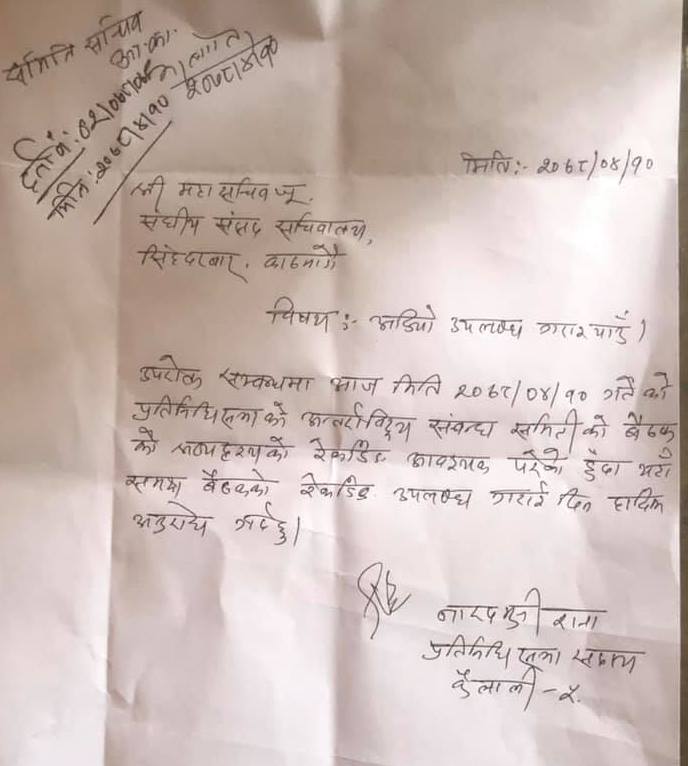 समिति सचिव
आ.का.
दर्ता नं: ०२/०७८/०७९
मिति: २०७८/४/१० २०७८/४/१०
मिति:- २०७८/०४/१०
श्री महासचिवज्यू,
संघीय संसद सचिवालय,
सिंहदरबार, काठमाडौं
विषय:- अडियो उपलब्ध गराई पाउँ ।
उपरोक्त सम्बन्धमा आज मिति २०७८/०४/१० गते को
प्रतिनिधिसभाको अन्तर्राष्ट्रिय संबन्ध समितीको बैठक
को श्रव्यदृश्यको रेकर्डिङ आवश्यक परेको हुँदा
समग्र बैठकको रेकर्डिङ उपलब्ध गराई दिन हार्दिक
अनुरोध गर्दछु।
नारदमुनी राना
प्रतिनिधि सभा सदस्य
कैलाली -५